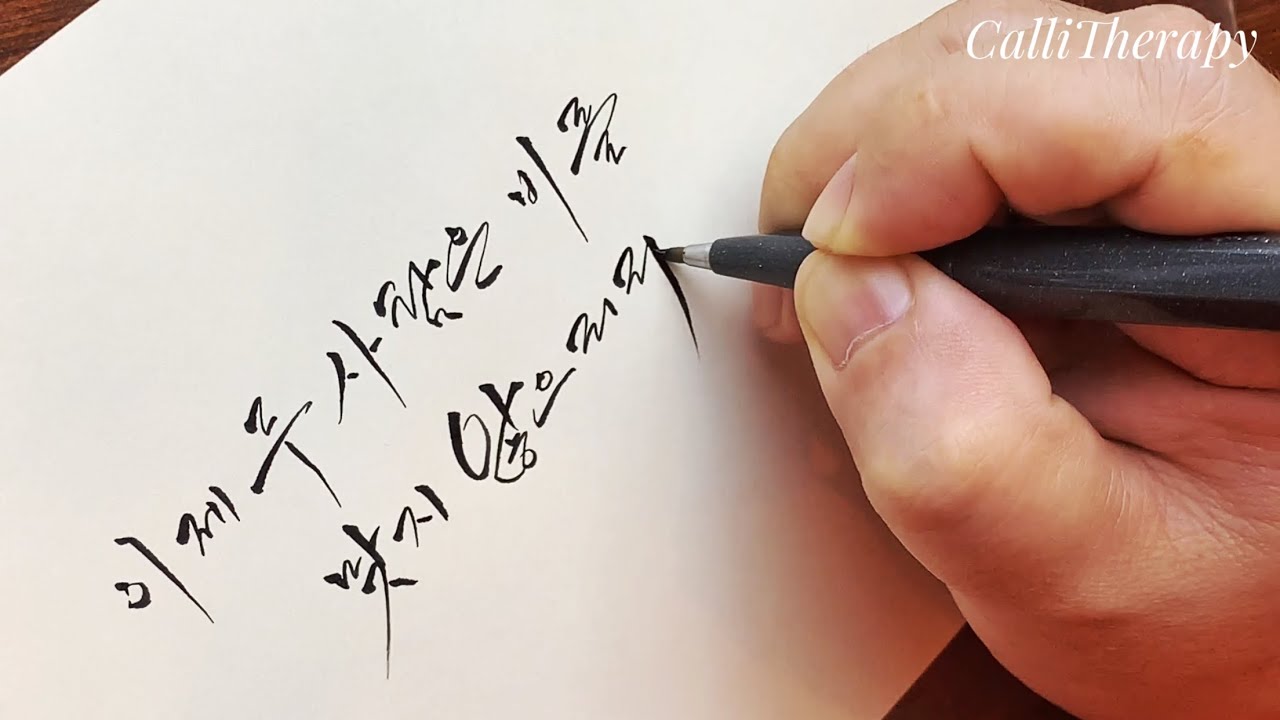 CalliTherapy
이제 두 사람은 비를
맞지 않으리라